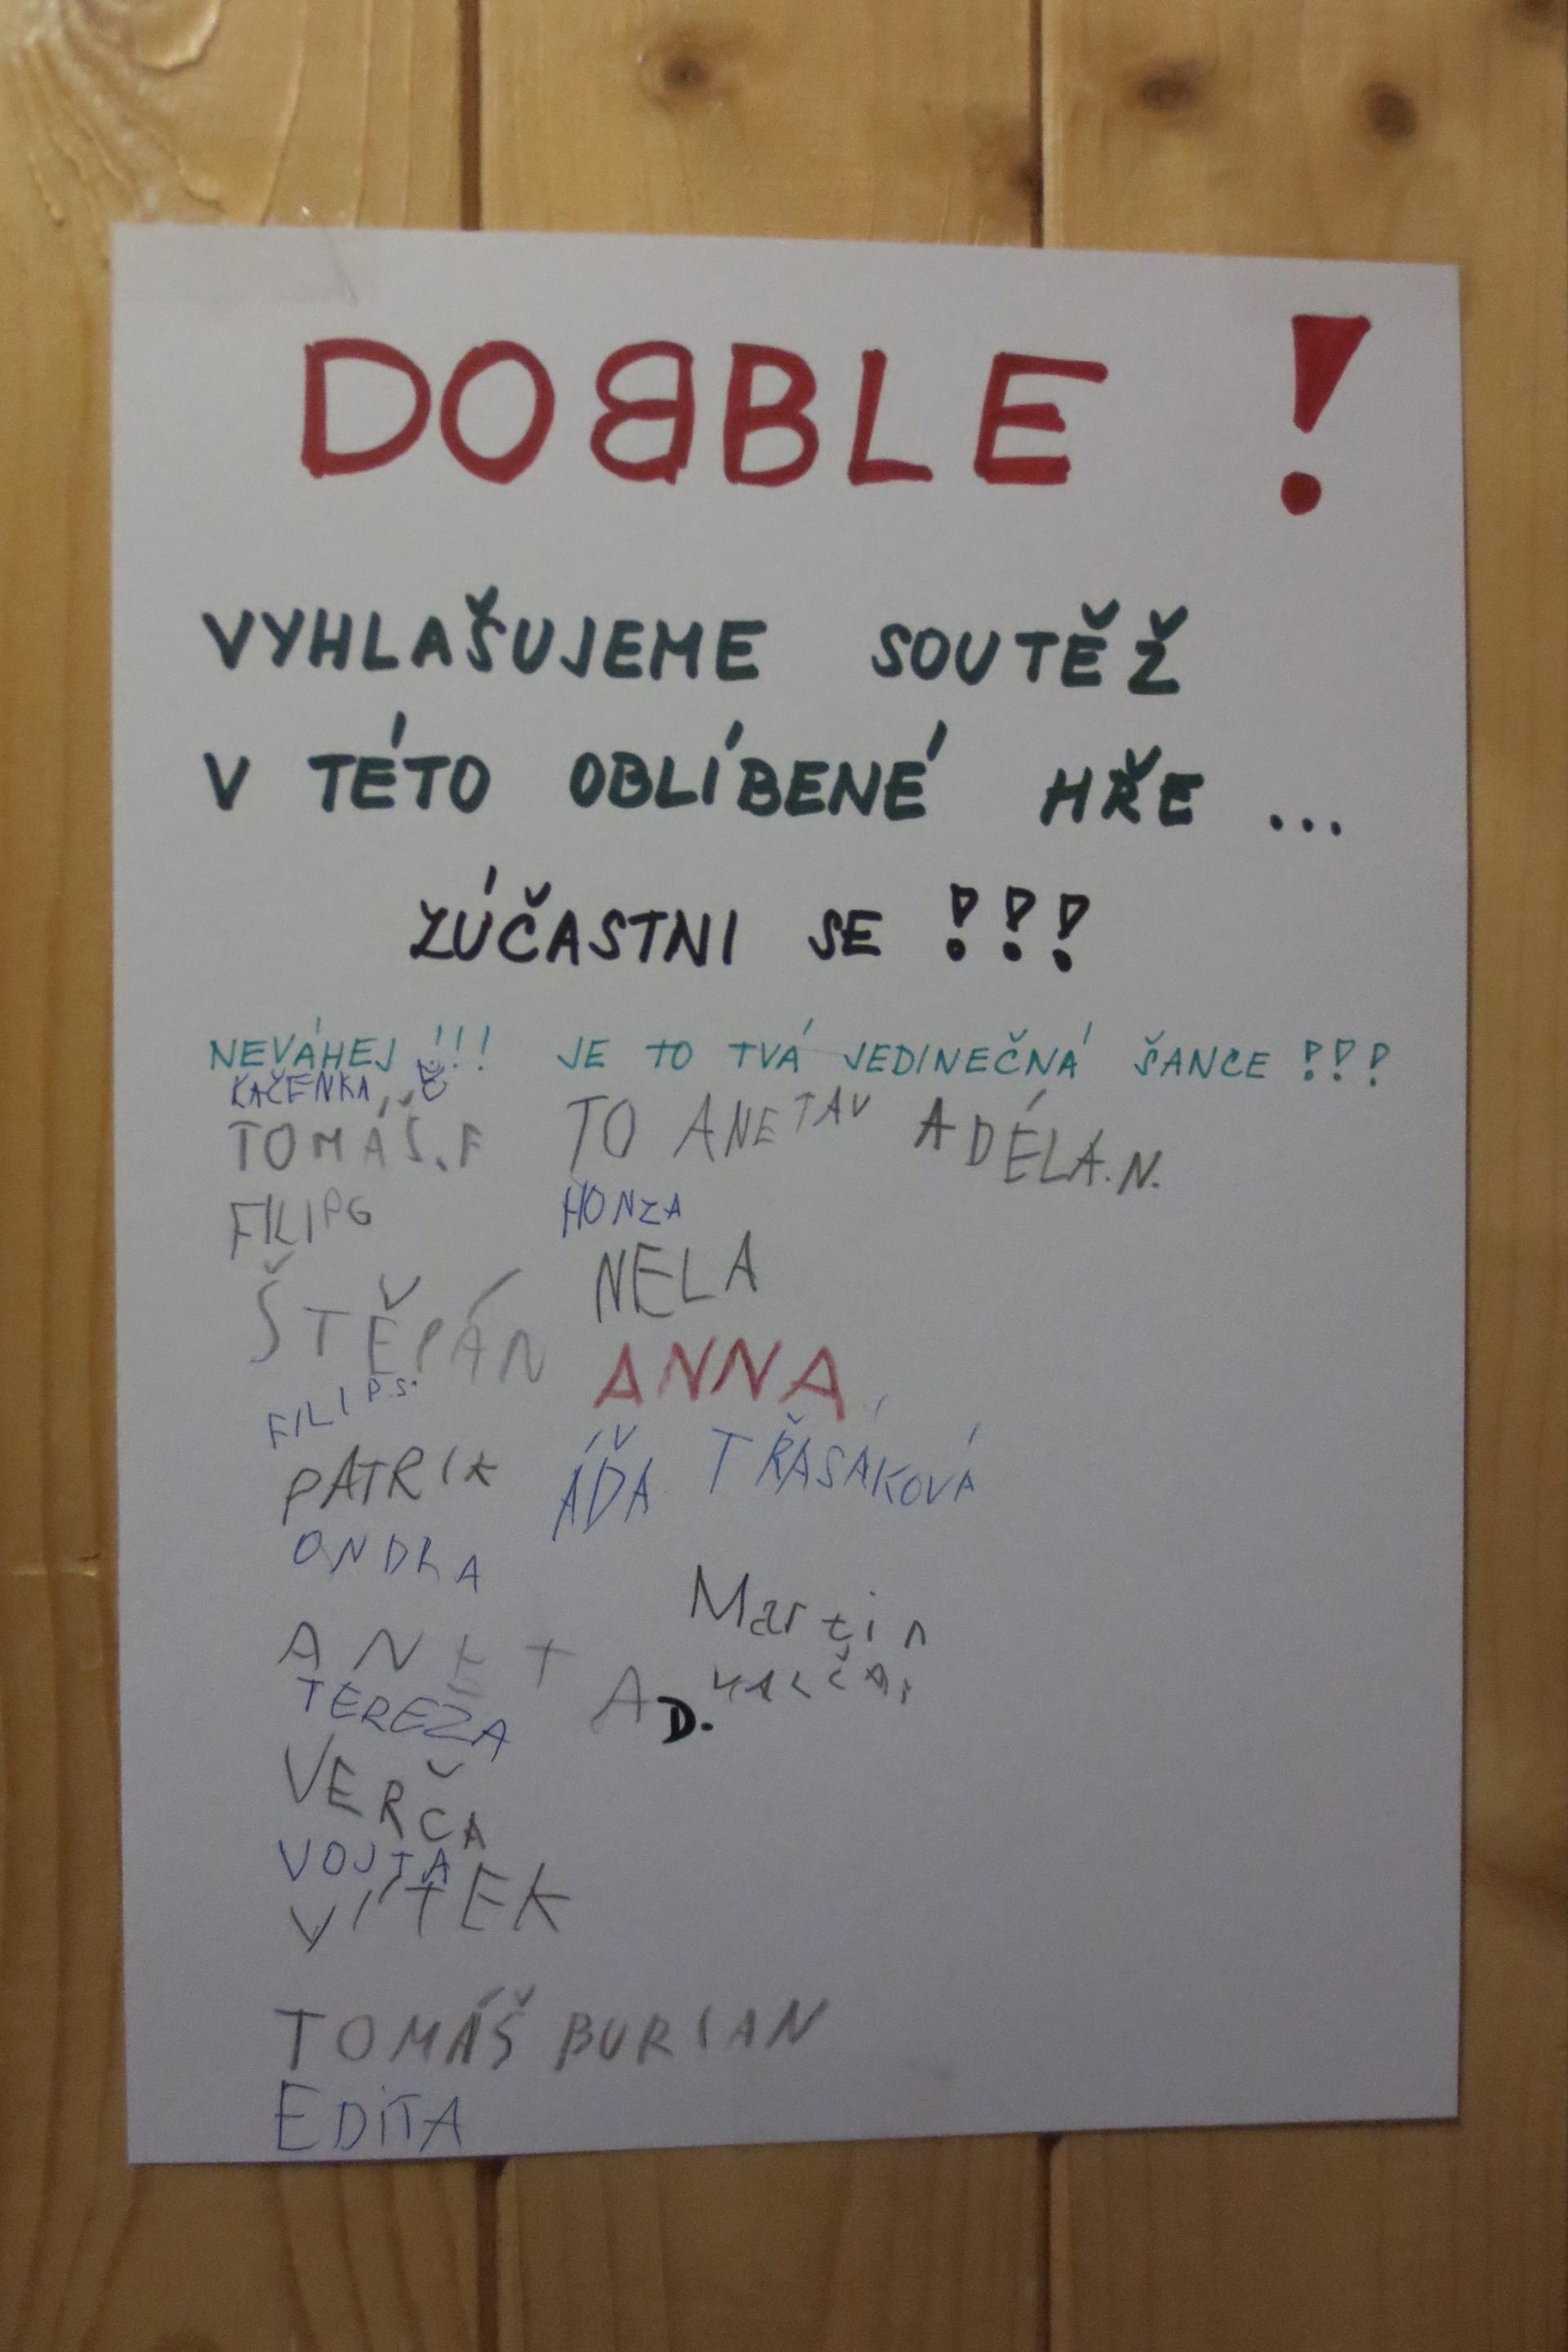 DOBBLE !
VYHLAŠUJEME SOUTĚŽ
V TÉTO OBLÍBENÉ HŘE ...
ZÚČASTNI SE !!!
NEVÁHEJ !!! JE TO TVÁ JEDINEČNÁ ŠANCE !!!
KAČENKA
TOMÁŠ.F TO ANETAV ADÉLA.N.
FILIPG HONZA
NELA
ŠTĚPÁN
ANNA
FILIP.S.
PATRIK ÁĎA TŘASÁKOVÁ
ONDRA
Martin
ANETA D.
TEREZA
VERČA
VOJTA
VÍTEK
TOMÁŠ BURIAN
EDITA